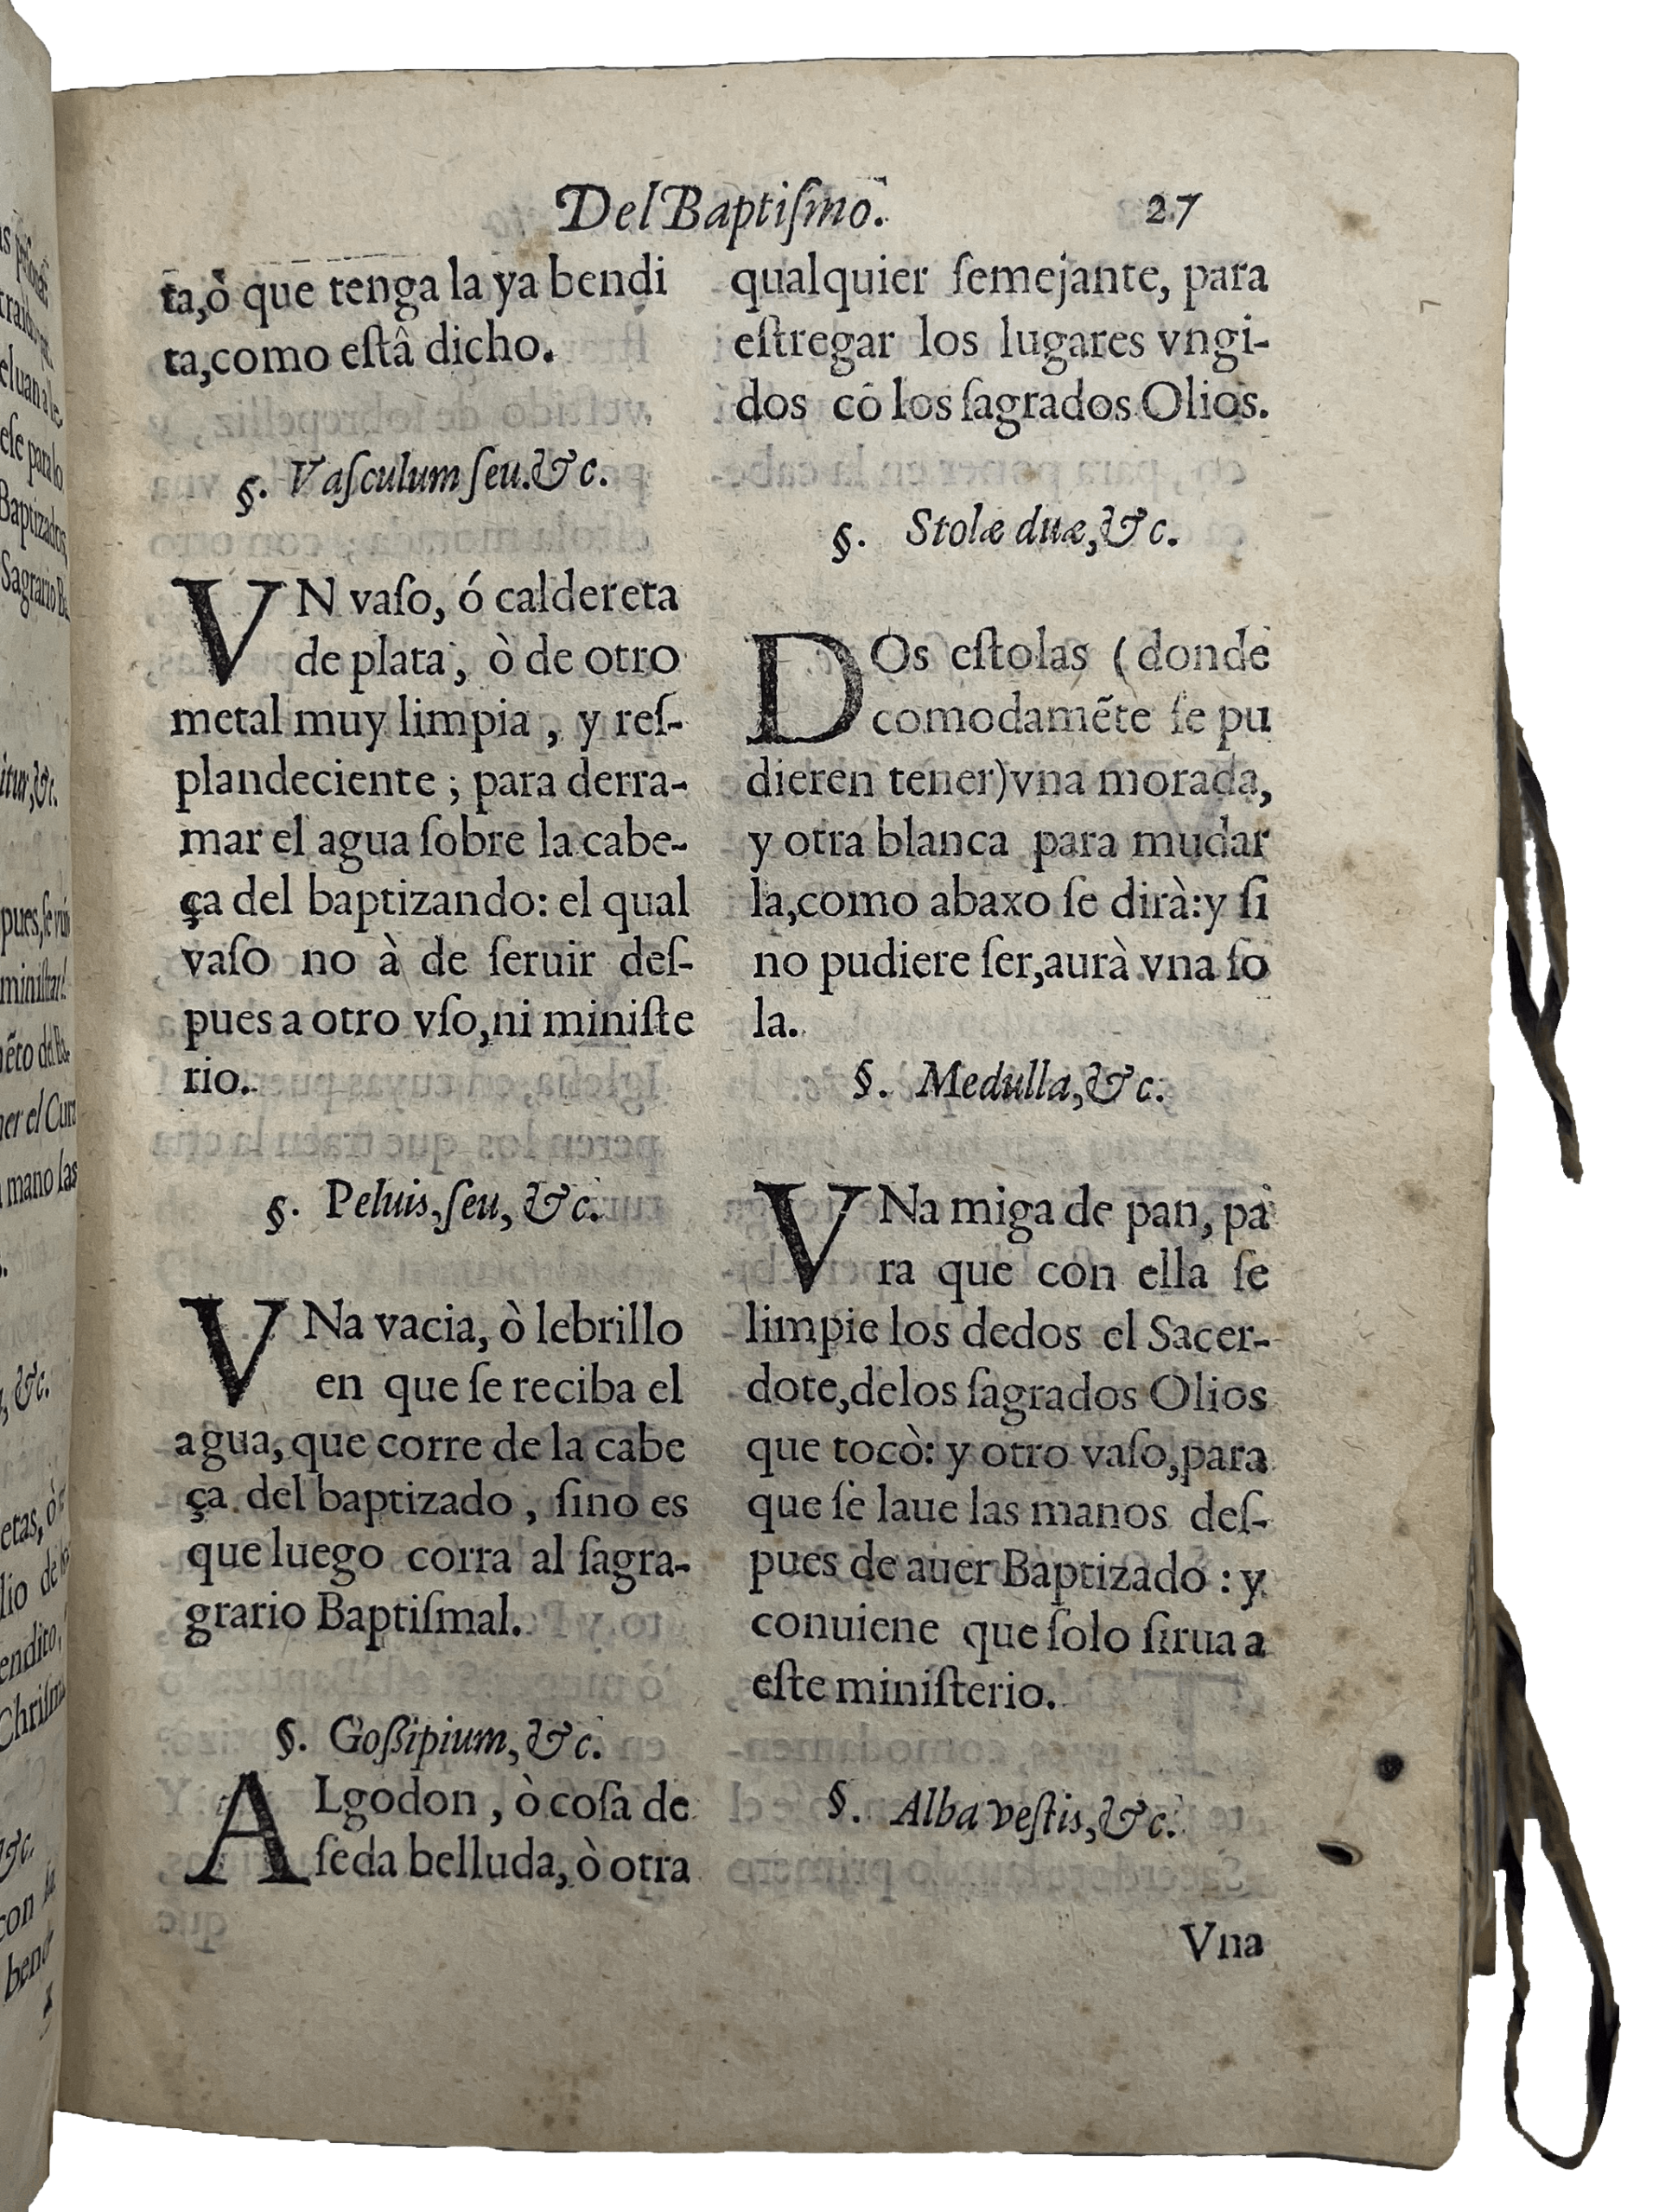 Del Baptiſmo. 27
ta,ò que tenga la ya bendi
ta,como eſtâ dicho.
§. Vaſculum ſeu.&c.
VN vaſo, ó caldereta
de plata, ò de otro
metal muy limpia, y reſ-
plandeciente; para derra-
mar el agua ſobre la cabe-
ça del baptizando: el qual
vaſo no à de ſeruir deſ-
pues a otro vſo,ni miniſte
rio.
§. Peluis,ſeu, &c.
VNa vacia, ò lebrillo
en que ſe reciba el
agua, que corre de la cabe
ça del baptizado, ſino es
que luego corra al ſagra-
grario Baptiſmal.
§. Goßipium,&c.
ALgodon, ò coſa de
ſeda belluda, ò otra
qualquier ſemejante, para
eſtregar los lugares vngi-
dos cõ los ſagrados Olios.
§. Stolæ duæ,&c.
DOs eſtolas (donde
comodamẽte ſe pu
dieren tener)vna morada,
y otra blanca para mudar
la,como abaxo ſe dirà:y ſi
no pudiere ſer,aurà vna ſo
la.
§. Medulla,&c.
VNa miga de pan, pa
ra que con ella ſe
limpie los dedos el Sacer-
dote,delos ſagrados Olios
que tocò: y otro vaſo,para
que ſe laue las manos deſ-
pues de auer Baptizado: y
conuiene que ſolo ſirua a
eſte miniſterio.
§. Alba veſtis,&c.
Vna